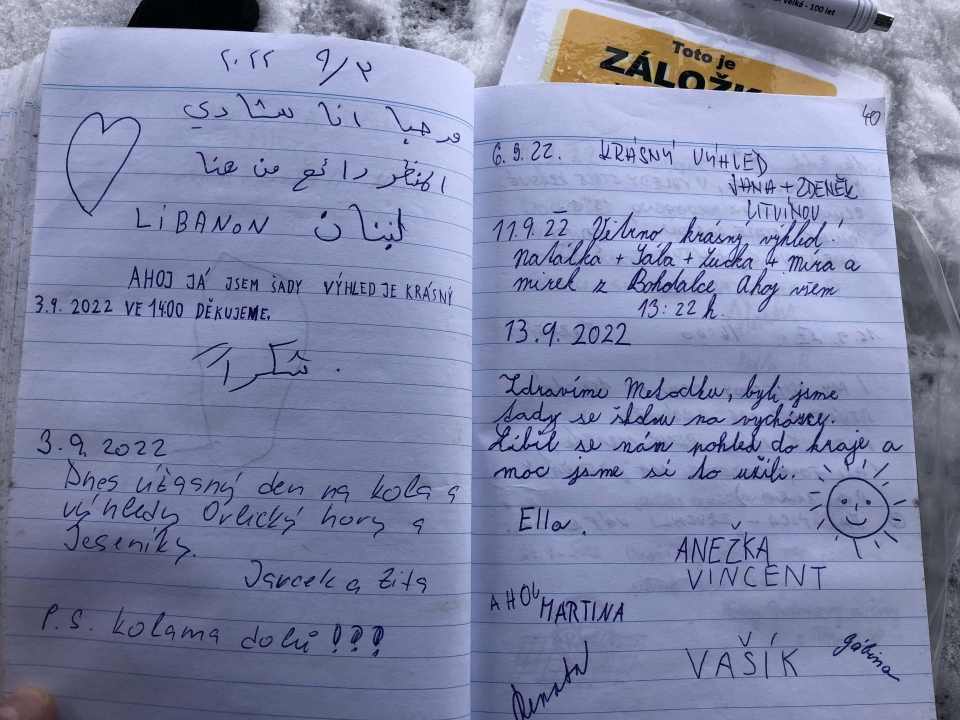 ٢٠٢٢ ٩/٣
مرحبا انا شادي
المنظر رائع من هنا
LiBANON لبنان
AHOJ JÁ JSEM ŠADY VÝHLED JE KRÁSNÝ
3.9.2022 VE 14:00 DĚKUJEME.
شكرا
3.9.2022
Dnes úžasný den na kola a
výhledy Orlický hory a
Jeseníky.
Jarcek a Zita
P.S. kolama dolů !?!?
40
6.9.22. KRÁSNÝ VÝHLED
JANA + ZDENĚK
LITVÍNOV
11.9.22 Větrno krásný výhled!
Natálka + Tála + Lucka + Míra a
mirek z Bohdalce Ahoj všem
13:22 h.
13.9.2022
Zdravíme Metodku, byli jsme
tady se školou na vycházce.
Líbil se nám pohled do kraje a
moc jsme si to užili.
Ella.
ANEŽKA
VINCENT
AHOJ MARTINA
VAŠÍK
Gábina
Renata
Toto je
ZÁLOŽK
velká - 100 let